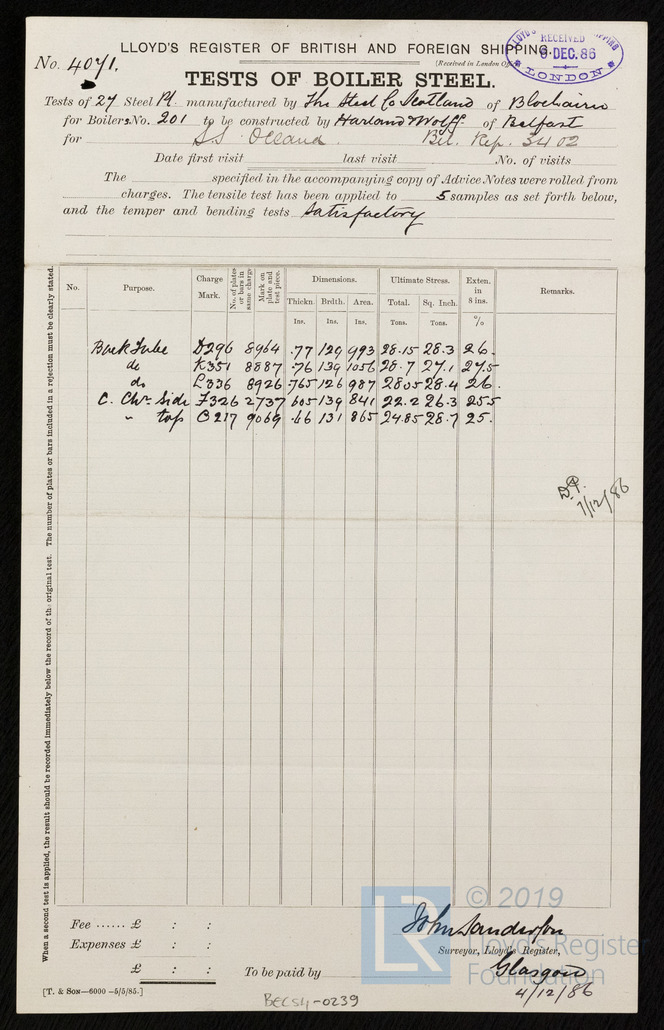 LLOYD'S REGISTER OF BRITISH AND FOREIGN SHIPPING.
No. 4071.
(Received in London Of
LLOYD'S RECEIVED SHIPPING
9 DEC. 86
LONDON
TESTS OF BOILER STEEL.
Tests of 27 Steel Pl. manufactured by The Steel Co Scotland of Blochairn
for Boilers No. 201 to be constructed by Harland Wolff of Belfast
for SS Bel. Rep. 3402
Date first visit last visit No. of visits
The specified in the accompanying copy of Advice Notes were rolled from
charges. The tensile test has been applied to 5 samples as set forth below,
and the temper and bending tests satisfactory
When a second test is applied, the result should be recorded immediately below the record of the original test. The number of plates or bars included in a rejection must be clearly stated.
No. Purpose. Charge Mark. No. of plates or bars in same charge Mark on plate and test piece. Dimensions. Ultimate Stress. Exten. in 8 ins. Remarks.
Thickn. Brdth. Area. Total. Sq. Inch.
Ins. Ins. Ins. Tons. Tons. %
Back Tube D296 8964 .77 129 993 28.15 28.3 26.
do K351 8887 .76 139 1056 28.7 27.1 27.5
do L336 8926 .765 126 987 28.05 28.4 26.
C. Chr. Side F326 2737 605 139 841 22.2 26.3 25.5
" top C217 9069 .66 131 865 24.85 28.7 25.
7/12/86
Fee ...... £ : :
Expenses £ : :
£ : :
To be paid by
John Sanderson
Surveyor, Lloyd's Register,
Glasgow
4/12/86
[T. & SON—6000 —5/5/85.]
BEC54-0239
LR
© 2019
Lloyd's Register
Foundation